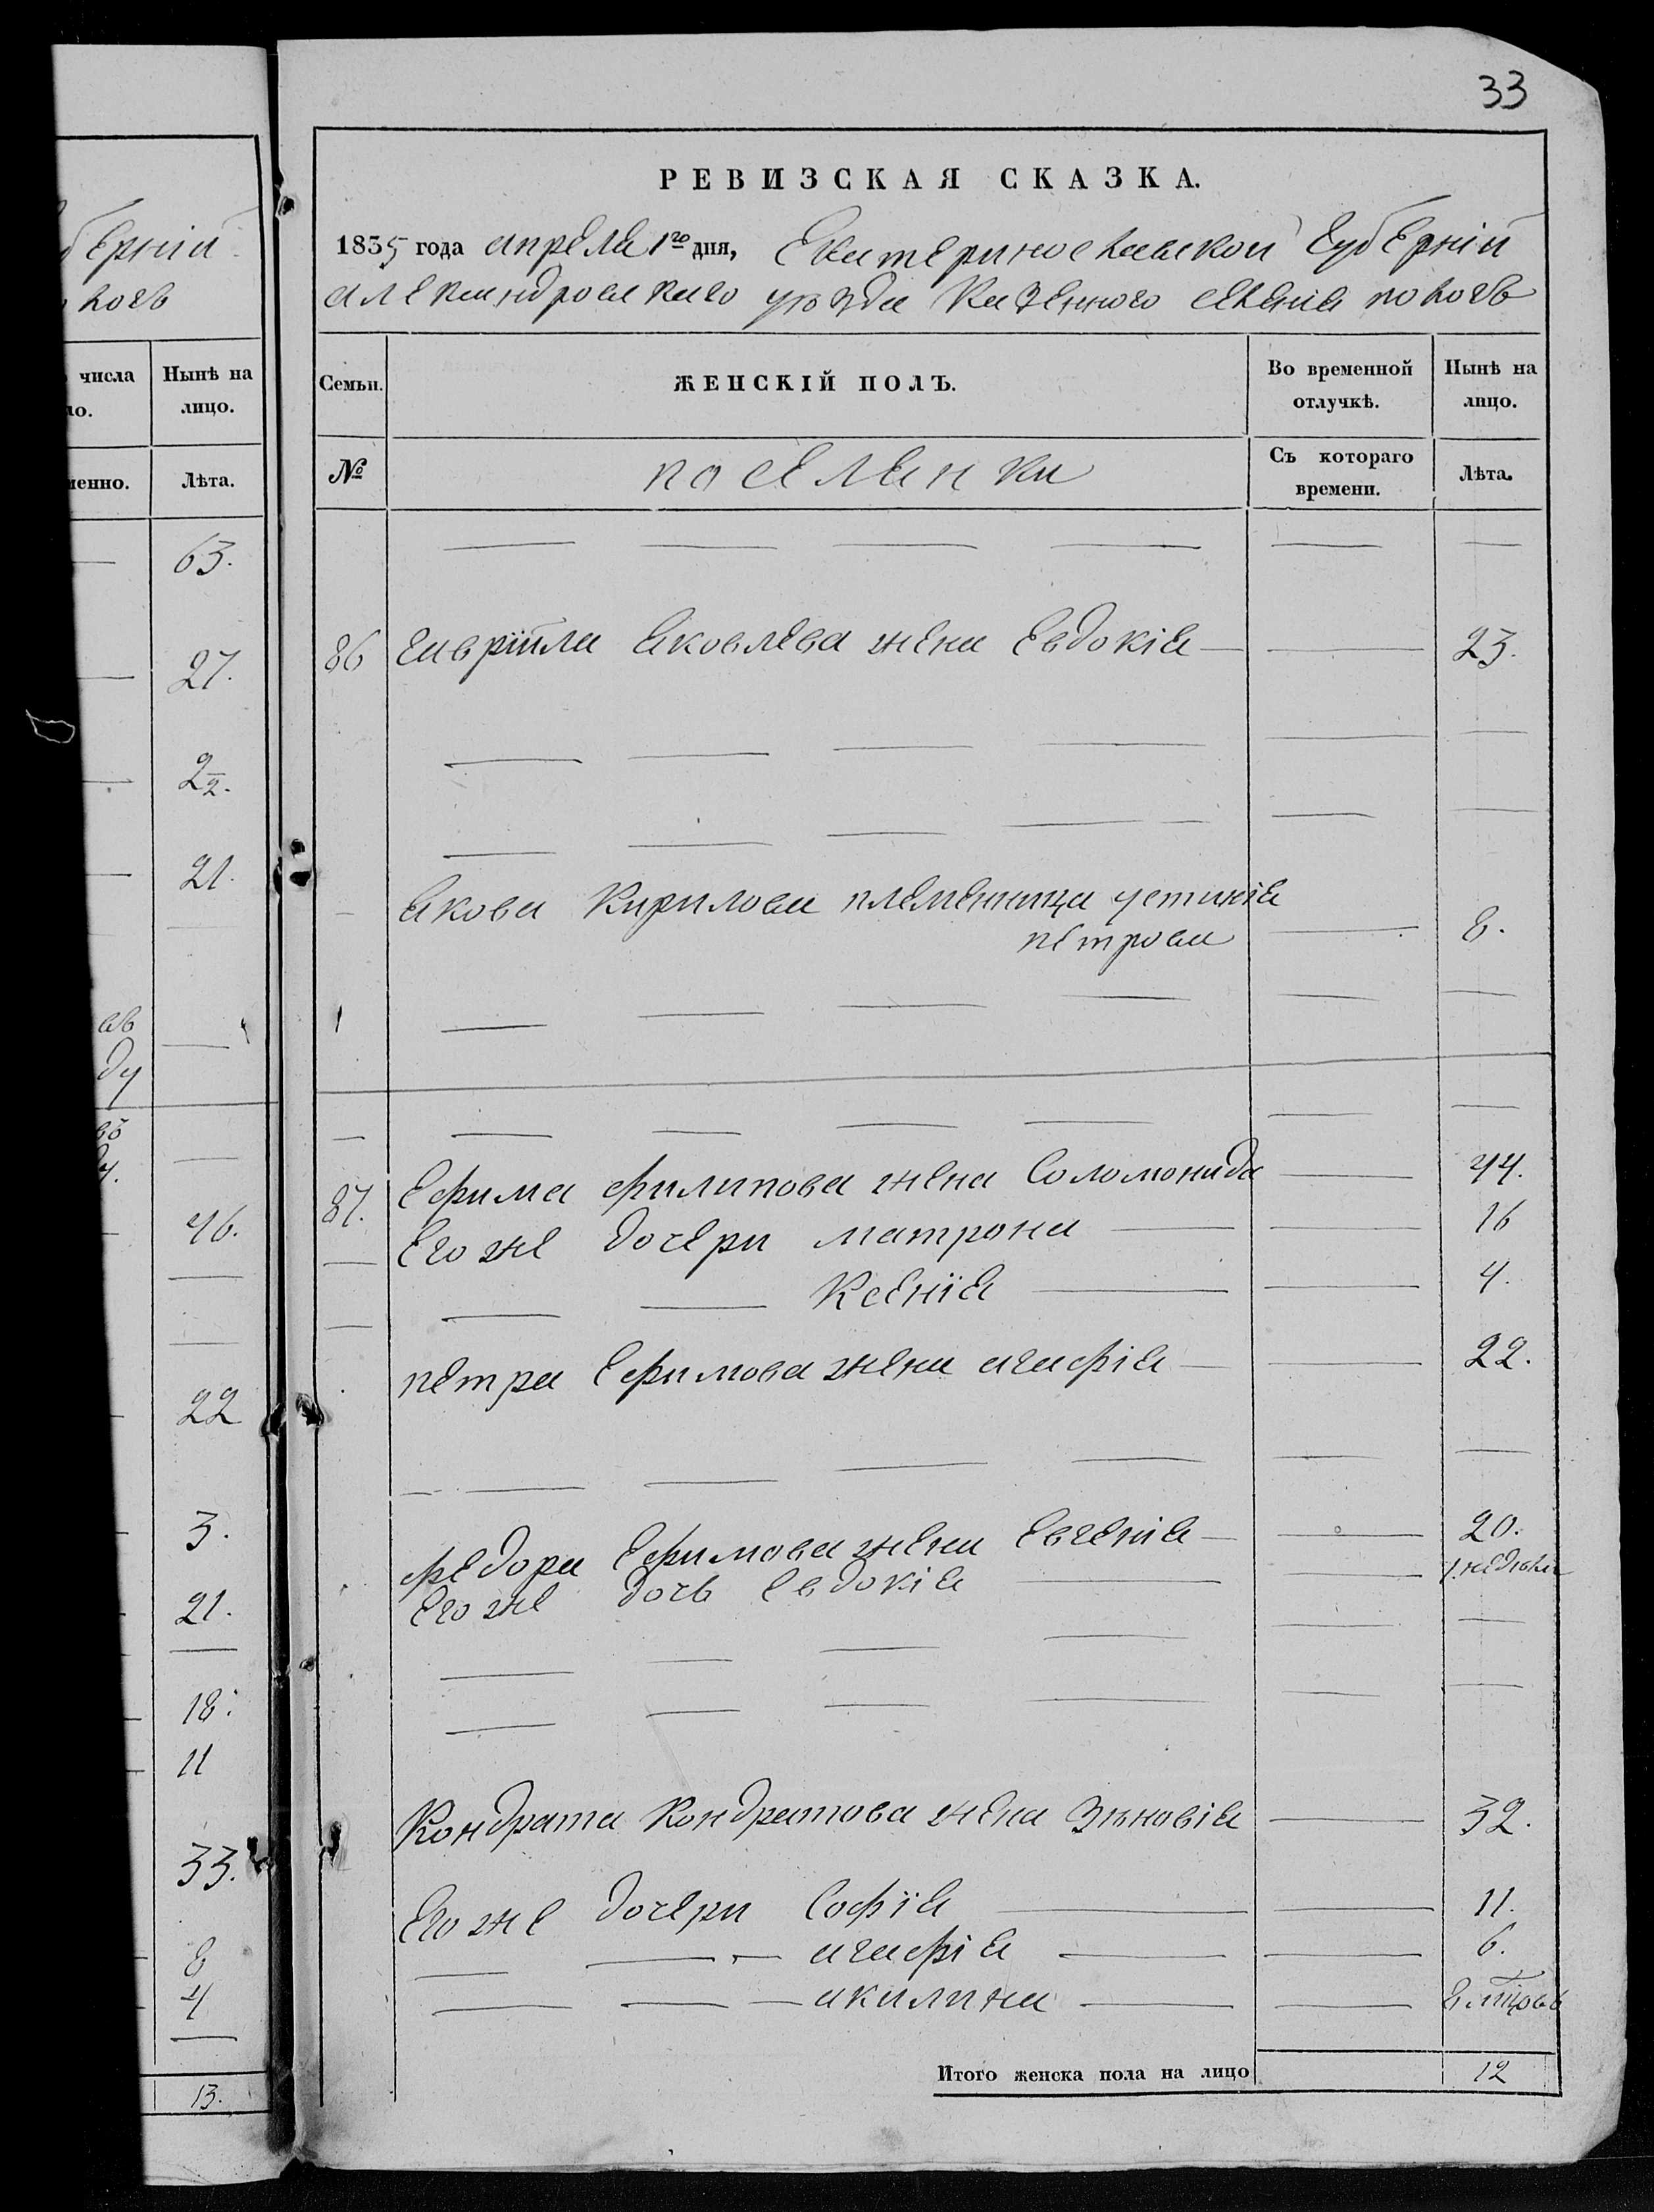 бЕрніи
ковъ
числа
ло.
Нынѣ на
лицо.
менно.
Лѣта.
63.
27.
22.
21.
ав
ду
46.
22
3.
21.
18.
11
33.
8
4
13.
33
РЕВИЗСКАЯ СКАЗКА.
1835 года апреля 1го дня, Екатеринославской Губерніи
александровскаго уѣзда Казенного селения поповъ
Семьи.
ЖЕНСКІЙ ПОЛЪ.
Во временной
отлучкѣ.
Нынѣ на
лицо.
№
поселянки
Съ котораго
времени.
Лѣта.
86 Гавріила Яковлева жена Евдокія 23.
Якова Кирилова племянница устинія
петрова 8.
87. Ефима филипова жена Соломонида 44.
Его же дочери матрона 16
Ксенія 4.
петра Ефимова жена агафія 22.
федора Ефимова жена Евгенія 20.
Его же дочь Евдокія 1 недѣли
Кондрата Кондратова жена Зѣновія 32.
Его же дочери Софія 11.
агафія 6.
акилина 8 мцовъ
Итого женска пола на лицо 12